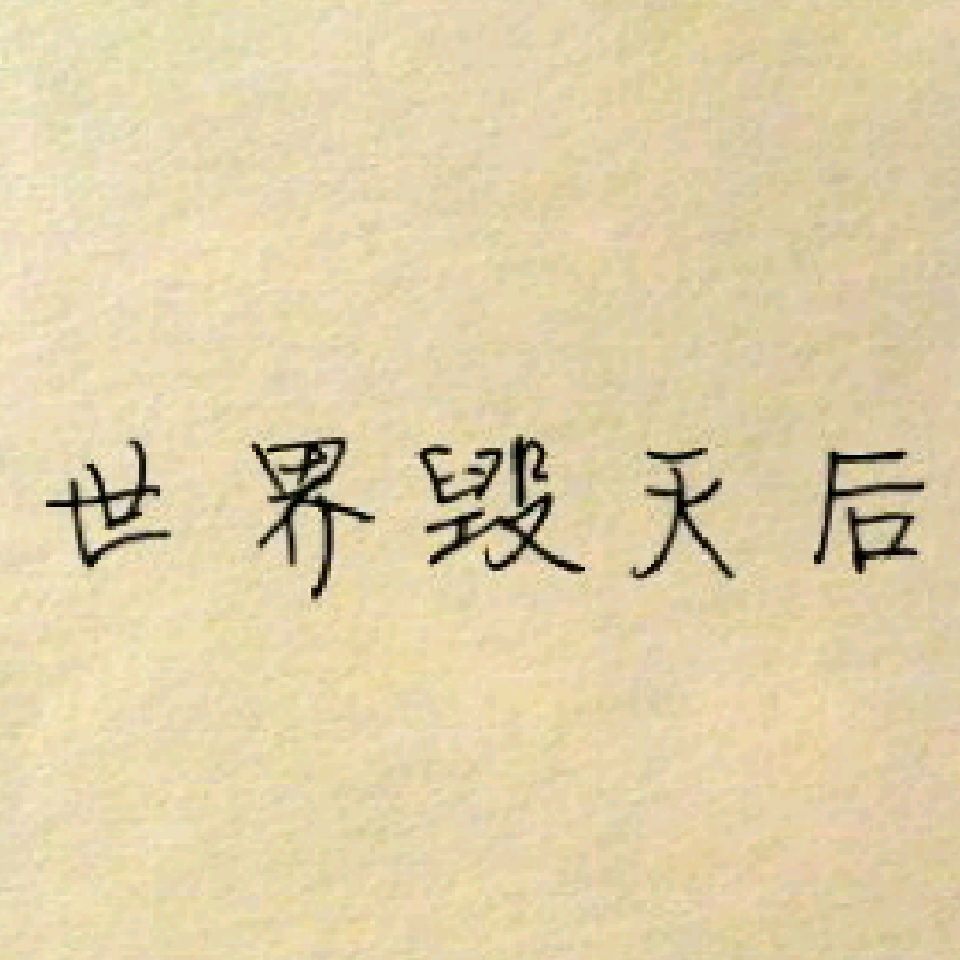 世界毁灭后